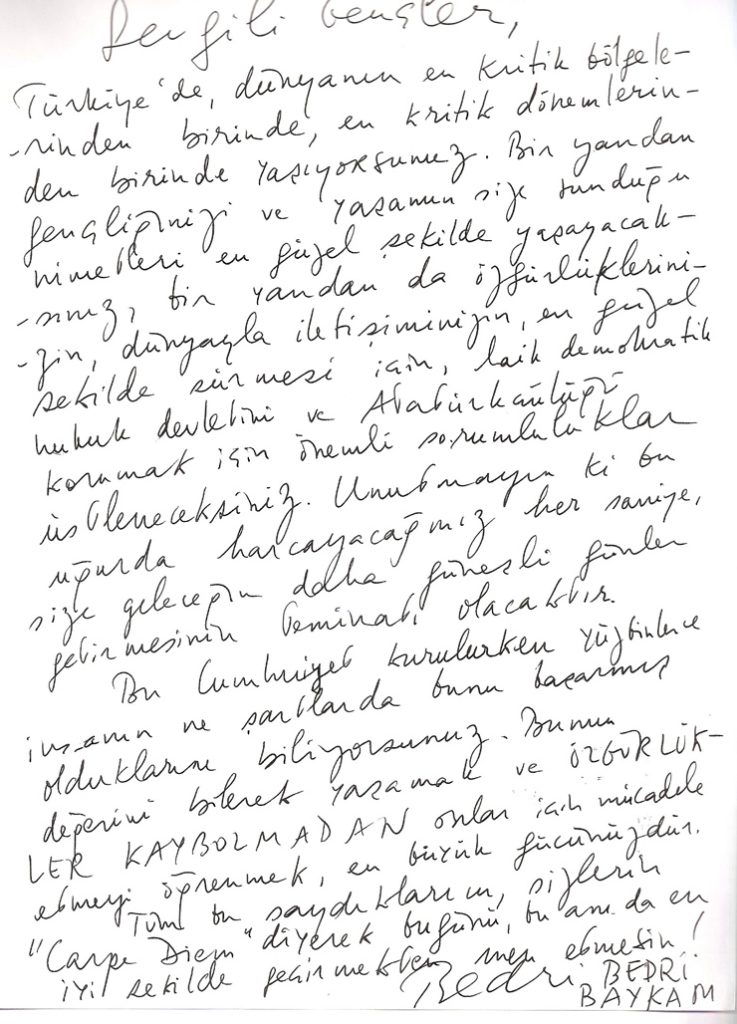 Sevgili Gençler,
Türkiye'de, dünyanın en kritik bölgele-
-rinden birinde, en kritik dönemlerin-
den birinde yaşıyorsunuz. Bir yandan
gençliğinizi ve yaşamın size sunduğu
nimetleri en güzel şekilde yaşayacak-
-sınız, bir yandan da özgürlüklerini-
-zin, dünyayla iletişiminizin, en güzel
şekilde sürmesi için, laik demokratik
hukuk devletini ve Atatürkçülüğü
korumak için önemli sorumluluklar
üstleneceksiniz. Unutmayın ki bu
uğurda harcayacağınız her saniye,
size geleceğin daha güneşli günler
getirmesinin teminatı olacaktır.
Bu Cumhuriyet kurulurken yüzbinlerce
insanın ne şartlarda bunu başarmış
olduklarını biliyorsunuz. Bunun
değerini bilerek yaşamak ve ÖZGÜRLÜK-
LER KAYBOLMADAN onlar için mücadele
etmeyi öğrenmek, en büyük gücünüzdür.
Tüm bu saydıklarım, sizlerin
"Carpe Diem" diyerek bugünü, bu anı da en
iyi şekilde geçirmekten men etmesin!
Bedri BEDRİ
BAYKAM